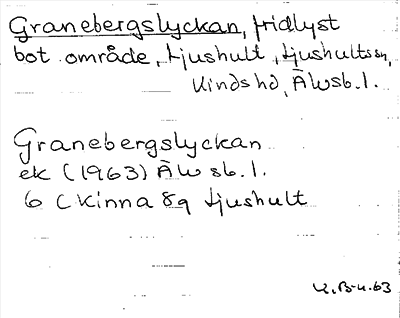 Granebergslyckan, fridlyst
bot. område, Ljushult, Ljushults sn,
Kinds hd, Älvsb. l.
Granebergslyckan
ek (1963) Älvsb. l.
6 C Kinna 8g Ljushult